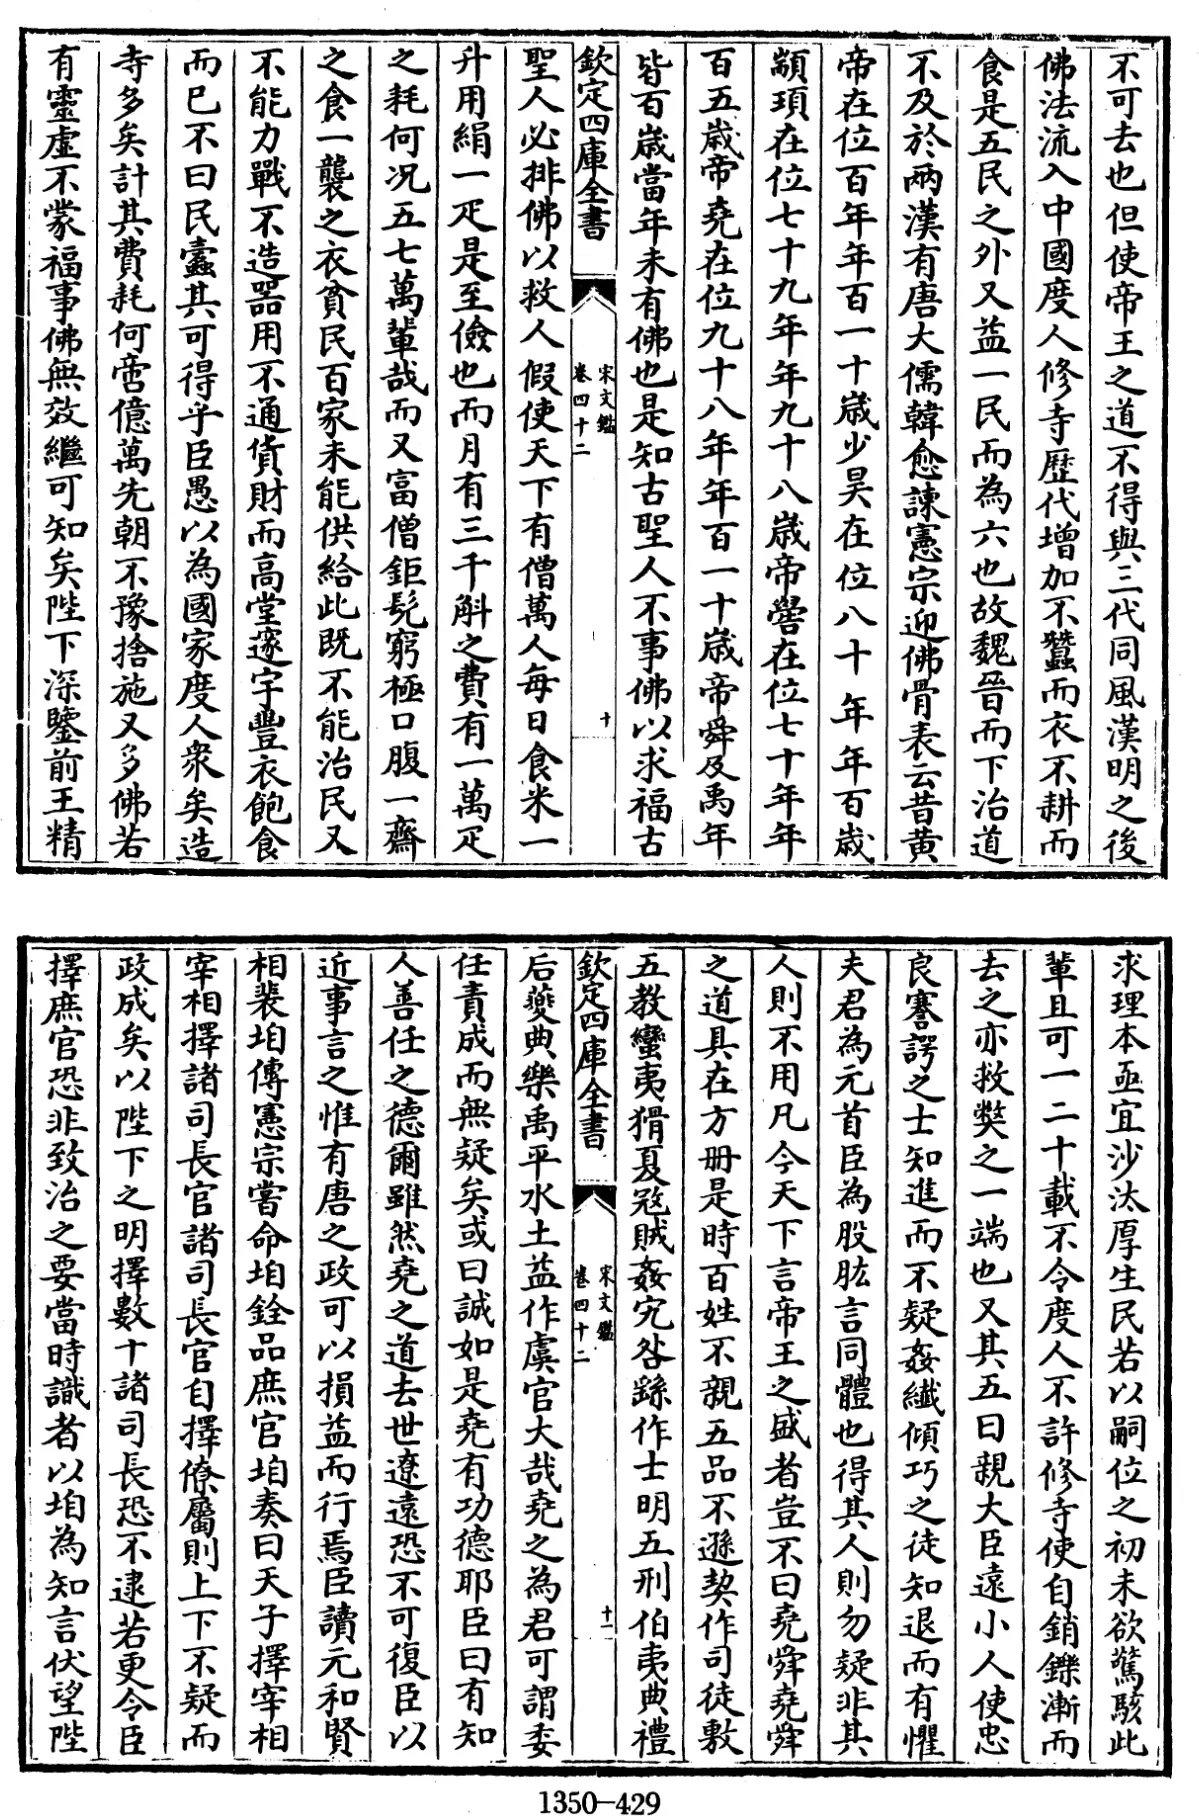 不可去也但使帝王之道不得與三代同風漢明之後
佛法流入中國度人修寺歷代增加不蠶而衣不耕而
食是五民之外又益一民而為六也故魏晉而下治道
不及於兩漢有唐大儒韓愈諫憲宗迎佛骨表云昔黄
帝在位百年年百一十歲少昊在位八十年年百歲
顓頊在位七十九年年九十八歲帝嚳在位七十年年
百五歲帝堯在位九十八年年百一十歲帝舜及禹年
皆百歲當年未有佛也是知古聖人不事佛以求福古
欽定四庫全書
宋文鑑
卷四十二
十
聖人必排佛以救人假使天下有僧萬人每日食米一
升用絹一疋是至儉也而月有三千斛之費有一萬疋
之耗何况五七萬輩哉而又富僧鉅髡窮極口腹一齋
之食一襲之衣貧民百家未能供給此既不能治民又
不能力戰不造器用不通貨財而高堂邃宇豐衣飽食
而已不曰民蠹其可得乎臣愚以為國家度人衆矣造
寺多矣計其費耗何啻億萬先朝不豫捨施又多佛若
有靈虛不蒙福事佛無效繼可知矣陛下深鑒前王精
求理本亟宜沙汰厚生民若以嗣位之初未欲驚駭此
輩且可一二十載不令度人不許修寺使自銷鑠漸而
去之亦救獘之一端也又其五曰親大臣遠小人使忠
良謇諤之士知進而不疑姦纎傾巧之徒知退而有懼
夫君為元首臣為股肱言同體也得其人則勿疑非其
人則不用凡今天下言帝王之盛者豈不曰堯舜堯舜
之道具在方冊是時百姓不親五品不遜契作司徒敷
五教蠻夷猾夏冦賊姦宄咎繇作士明五刑伯夷典禮
欽定四庫全書
宋文鑑
卷四十二
十一
后夔典樂禹平水土益作虞官大哉堯之為君可謂委
任責成而無疑矣或曰誠如是堯有功德耶臣曰有知
人善任之德爾雖然堯之道去世遼遠恐不可復臣以
近事言之惟有唐之政可以損益而行焉臣讀元和賢
相裴垍傳憲宗嘗命垍銓品庶官垍奏曰天子擇宰相
宰相擇諸司長官諸司長官自擇僚屬則上下不疑而
政成矣以陛下之明擇數十諸司長恐不逮若更令臣
擇庶官恐非致治之要當時識者以垍為知言伏望陛
1350-429